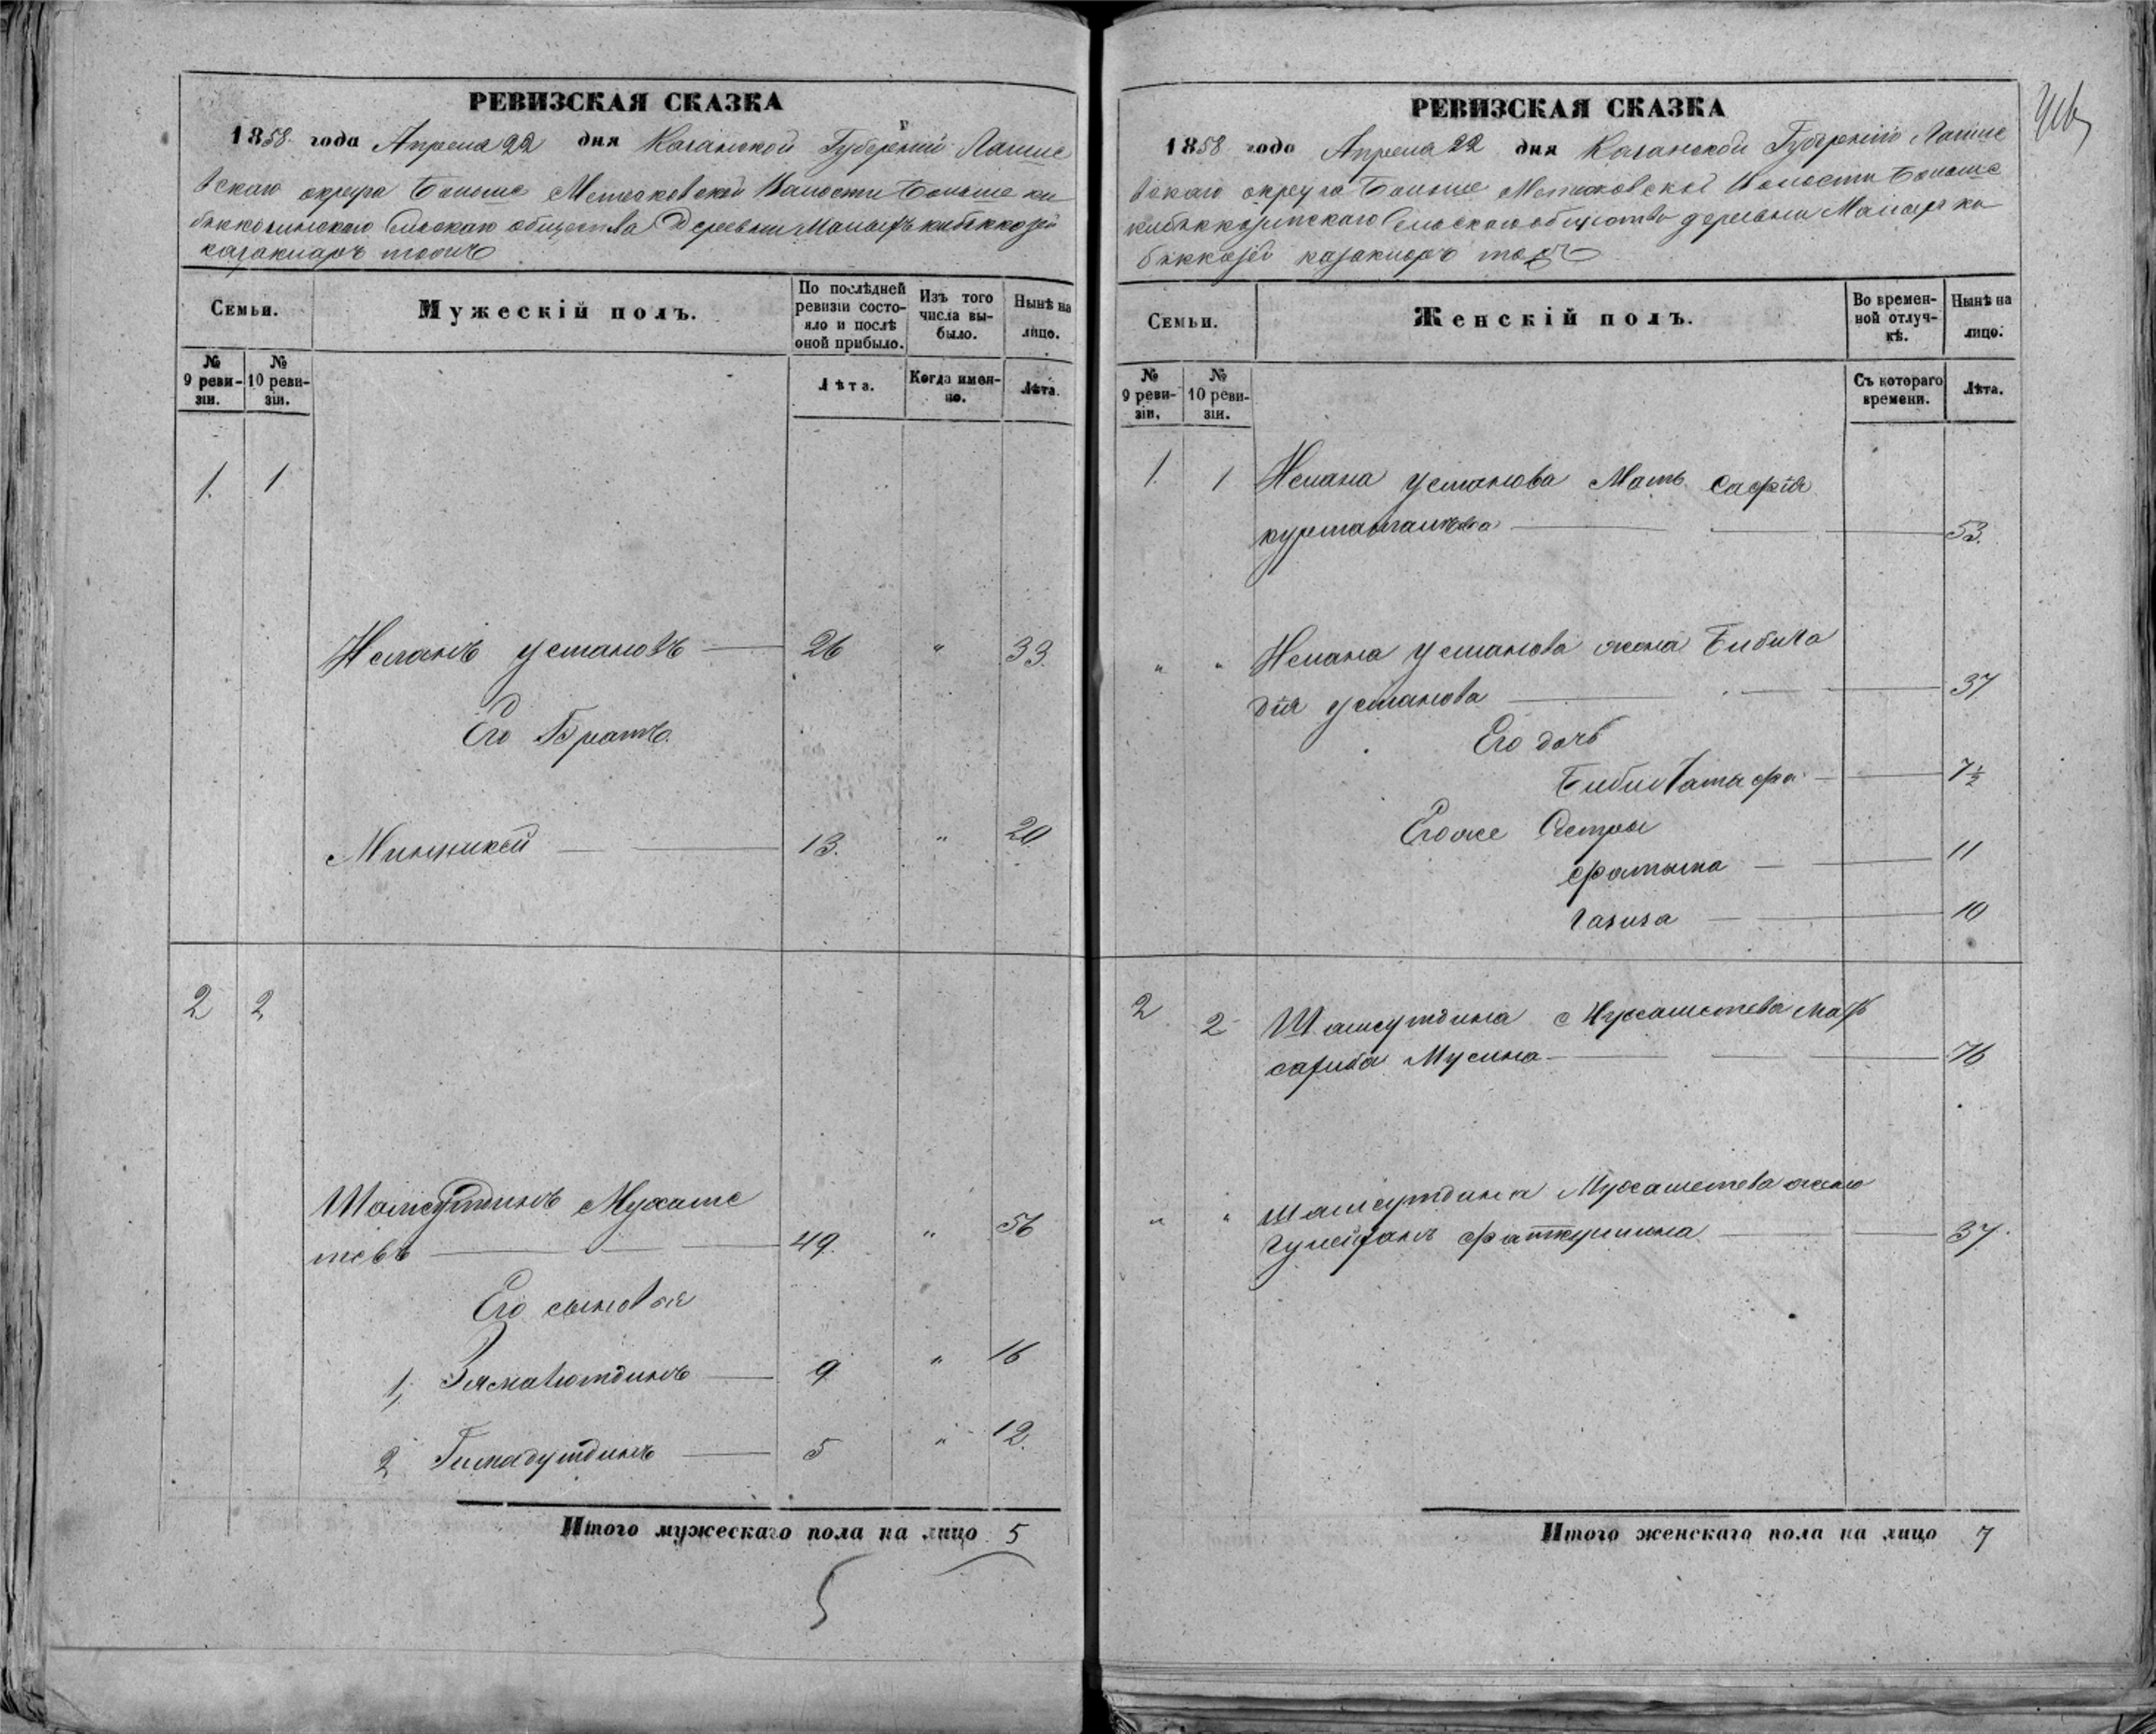 РЕВИЗСКАЯ СКАЗКА
1858 года Апреля 22 дня Казанской Губерніи Лаише
вскаго округа Больше Метесковской Волости Больше ки
бяккозинскаго Сельскаго общества Деревни Малыхъ кибяккозей
казакларъ тожъ
Семьи.
Мужескій полъ.
По послѣдней ревизіи состояло и послѣ оной прибыло.
Изъ того числа выбыло.
Нынѣ на лицо.
№ 9 ревизіи.
№ 10 ревизіи.
Лѣта.
Когда именно.
Лѣта.
1. 1
Исланъ Усмановъ 26 " 33.
Его Братъ
Минникей 13. " 20
2 2
Шамсутдинъ Мухаме
тевъ 49. " 56
Его сыновья
1, Зямалютдинъ 9 " 16
2 Гимадутдинъ 5 " 12.
Итого мужескаго пола на лицо 5
5
РЕВИЗСКАЯ СКАЗКА
1858 года Апреля 22 дня Казанской Губерніи Лаише
вскаго округа Больше Метесковской Волости Больше
кибяккозинскаго Сельскаго общества деревни Малыхъ ки
бяккозей казакларъ тожъ
Семьи.
Женскій полъ.
Во временной отлучкѣ.
Нынѣ на лицо.
№ 9 ревизіи.
№ 10 ревизіи.
Съ котораго времени.
Лѣта.
1. 1 Ислана Усманова Мать Сафія
курмангалѣева 53.
" " Ислана Усманова жена Бибига
дія Усманова 37
Его дочь
Бибилатыфа 7½
Егоже Сестры
Фатыма 11
Газиза 10
2 2 Шамсутдина Мухаметева мать
сагиба Мусина 76
" " Шамсутдина Мухаметева жена
Фаткуллина 37.
Итого женскаго пола на лицо 7